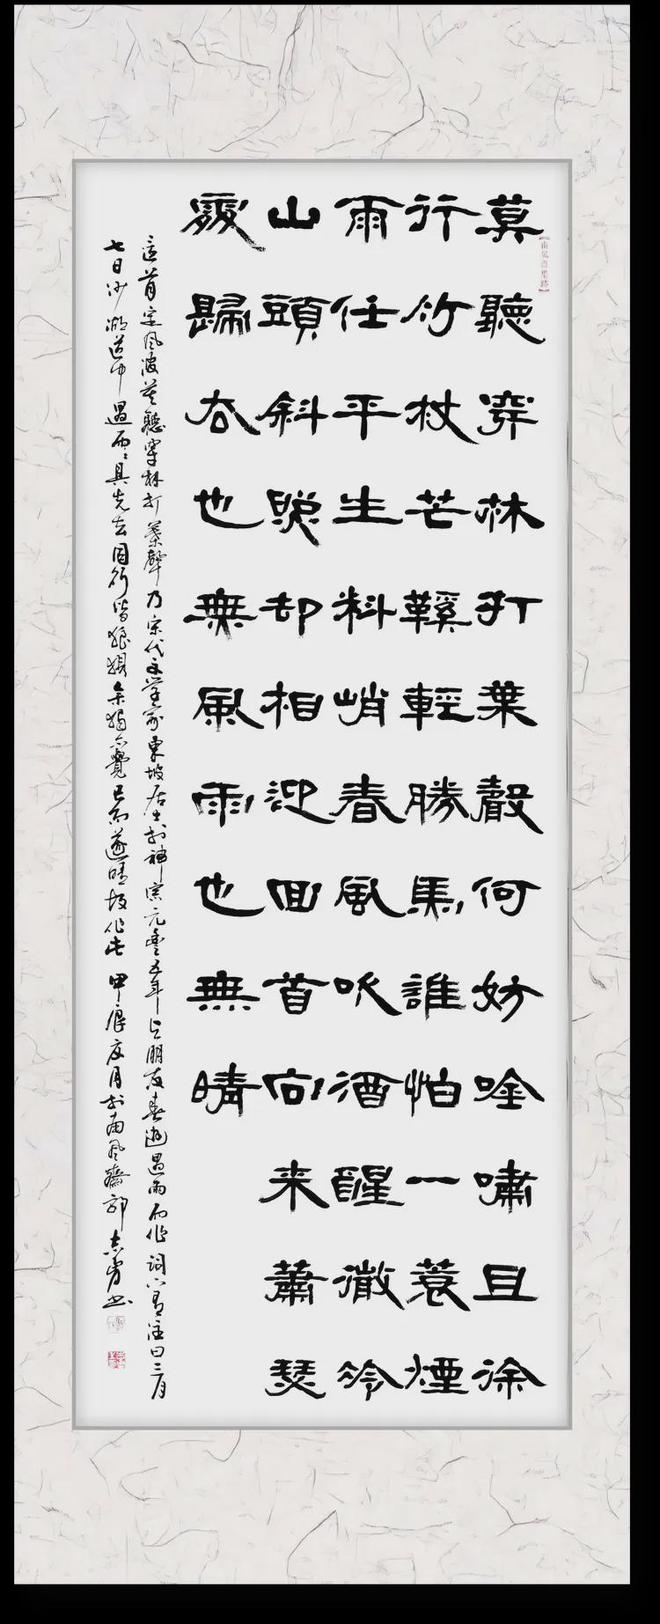 莫聽穿林打葉聲何妨唫嘯且徐
行竹杖芒鞵輕勝馬誰怕一蓑煙
雨任平生料峭春風吹酒醒微冷
山頭斜照却相迎回首向来蕭瑟
處歸去也無風雨也無晴
這首定風波莫聽穿林打葉聲乃宋代文學家東坡居士於神宗元豐五年與朋友春遊遇雨而作詞下有注曰三月
七日沙湖道中遇雨雨具先去同行皆狼狽余獨不覺已而遂晴故作此 甲辰夏月於南風齋郭志勇書